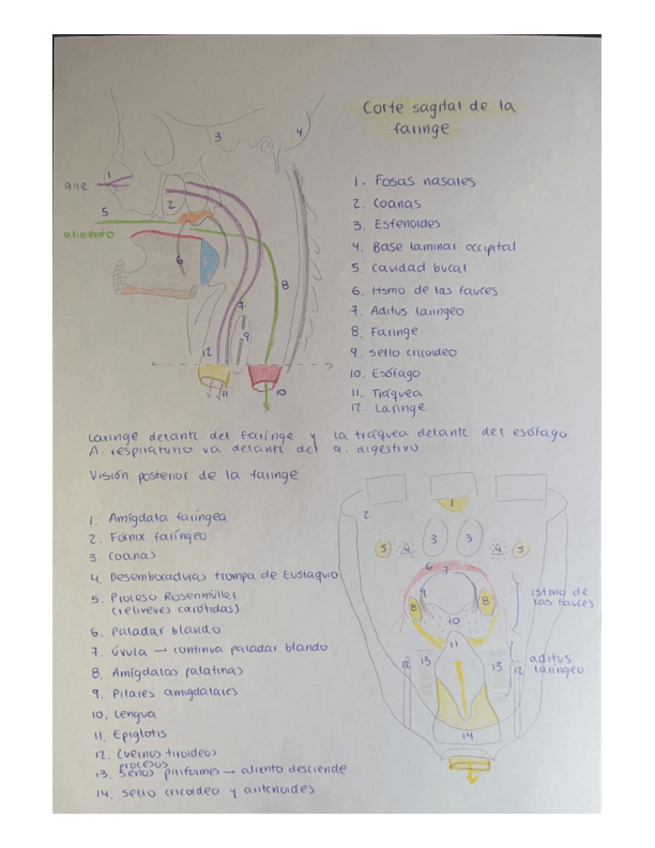 Corte sagital de la
faringe
1. Fosas nasales
2. Coanas
3. Esfenoides
4. Base laminar occipital
5. Cavidad bucal
6. Itsmo de las fauces
7. Aditus laríngeo
8. Faringe
9. Sello cricoideo
10. Esófago
11. Tráquea
12. Laringe
aire
alimento
1
2
3
4
5
6
7
8
9
10
11
12
Laringe delante del faringe y la tráquea delante del esófago
A. respiratorio va delante del a. digestivo
Visión posterior de la faringe
1. Amígdala faríngea
2. Fórnix faríngeo
3. Coanas
4. Desembocaduras trompa de Eustaquio
5. Proceso Rosenmüller
(relieves carótidas)
6. Paladar blando
7. Úvula → continua paladar blando
8. Amígdalas palatinas
9. Pilares amigdalares
10. Lengua
11. Epiglotis
12. Cuernos tiroideos
procesos
13. Senos piriformes → alimento desciende
14. Sello cricoideo y aritenoides
1
2
3 3
5 4 4 5
6 7
9
8 8
10
11
12 13 13 12
14
istmo de
las fauces
aditus
laríngeo